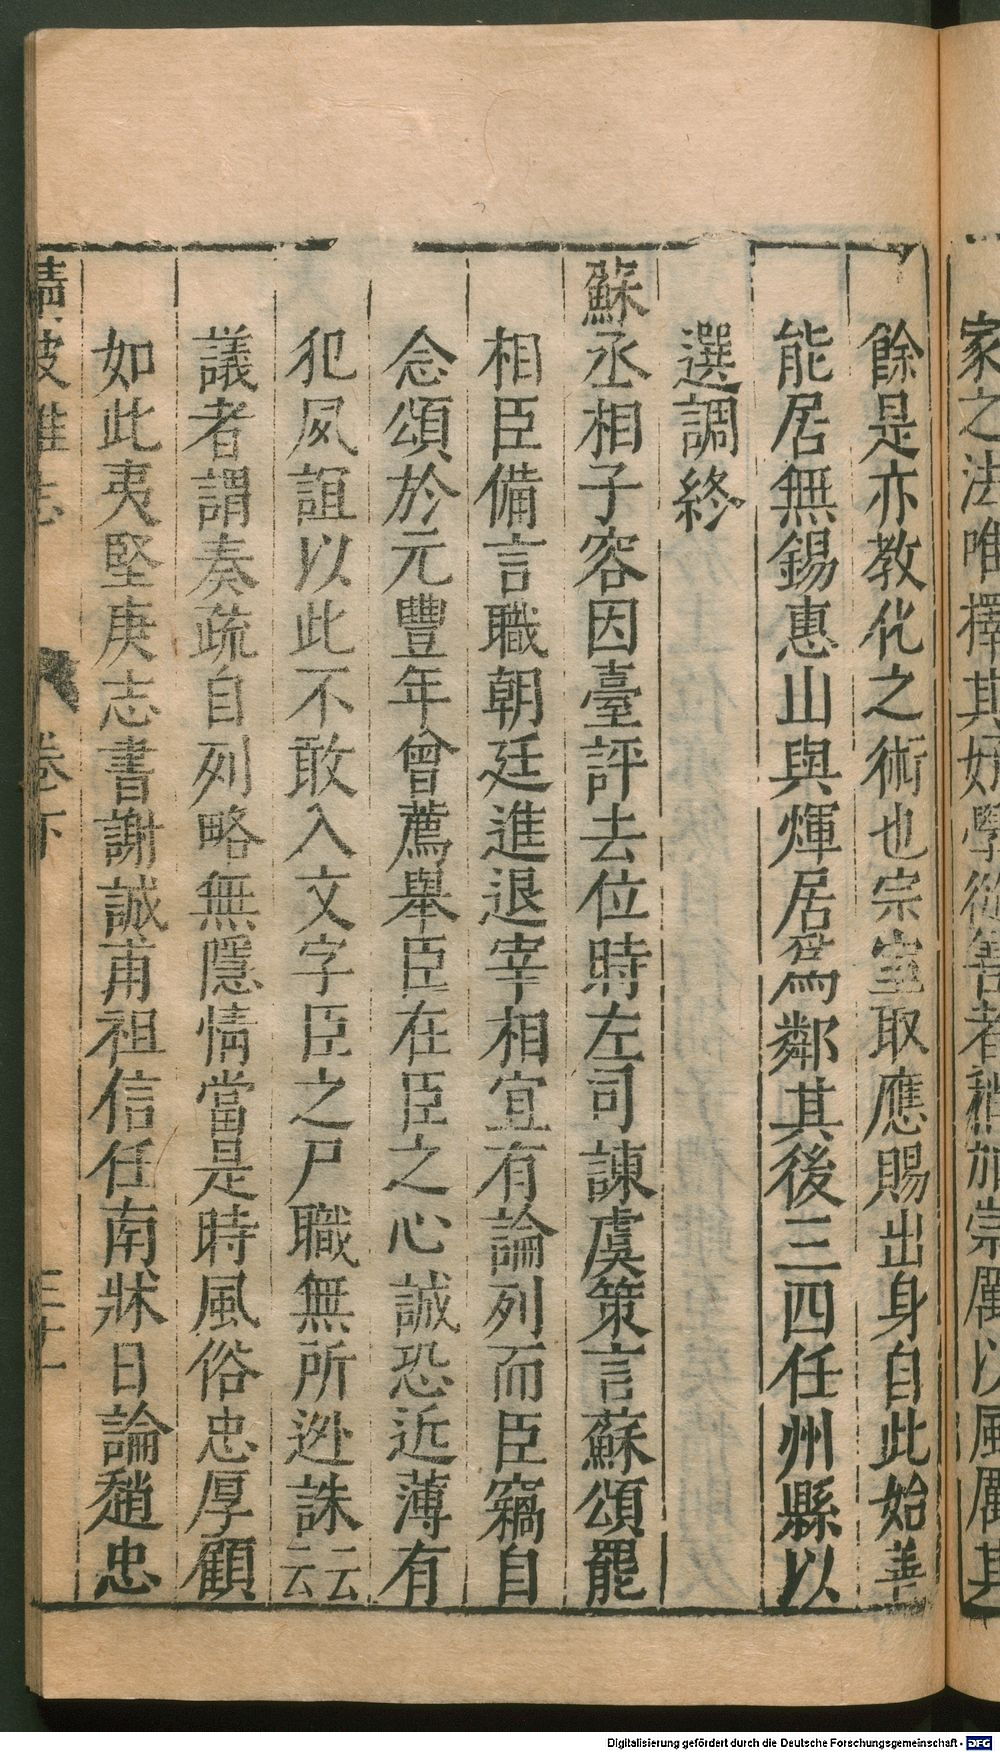 家之法唯擇其好學從善者稍旌崇厲以風厲其
餘是亦教化之術也宗室取應賜出身自此始善
能居無錫惠山與煇居爲鄰其後三四任州縣以
選調終
蘇丞相子容因臺評去位時左司諫虞策言蘇頌罷
相臣備言職朝廷進退宰相宜有論列而臣竊自
念頌於元豐年曾薦舉臣在臣之心誠恐近薄有
犯夙誼以此不敢入文字臣之尸職無所逃誅云云
議者謂奏疏自列略無隱情當是時風俗忠厚顧
如此夷堅庚志書謝誠甫祖信任南牀日論趙忠
清波雜志 卷下 三十一
Digitalisierung gefördert durch die Deutsche Forschungsgemeinschaft - DFG